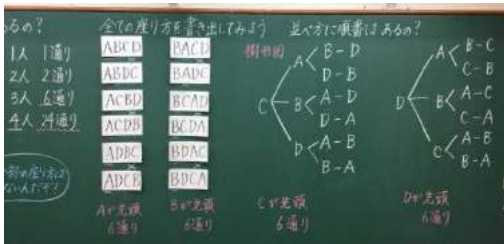 るの?
1人 1通り
2人 2通り
3人 6通り
4人 24通り
全ての座り方を書き出してみよう
ABCD
ABDC
ACBD
ACDB
ADBC
ADCB
Aが先頭
6通り
BACD
BADC
BCAD
BCDA
BDAC
BDCA
Bが先頭
6通り
並べ方に順番はあるの?
樹形図
C
A
B-D
D-B
B
A-D
D-A
D
A-B
B-A
Cが先頭
6通り
D
A
B-C
C-B
B
A-C
C-A
C
A-B
B-A
Dが先頭
6通り